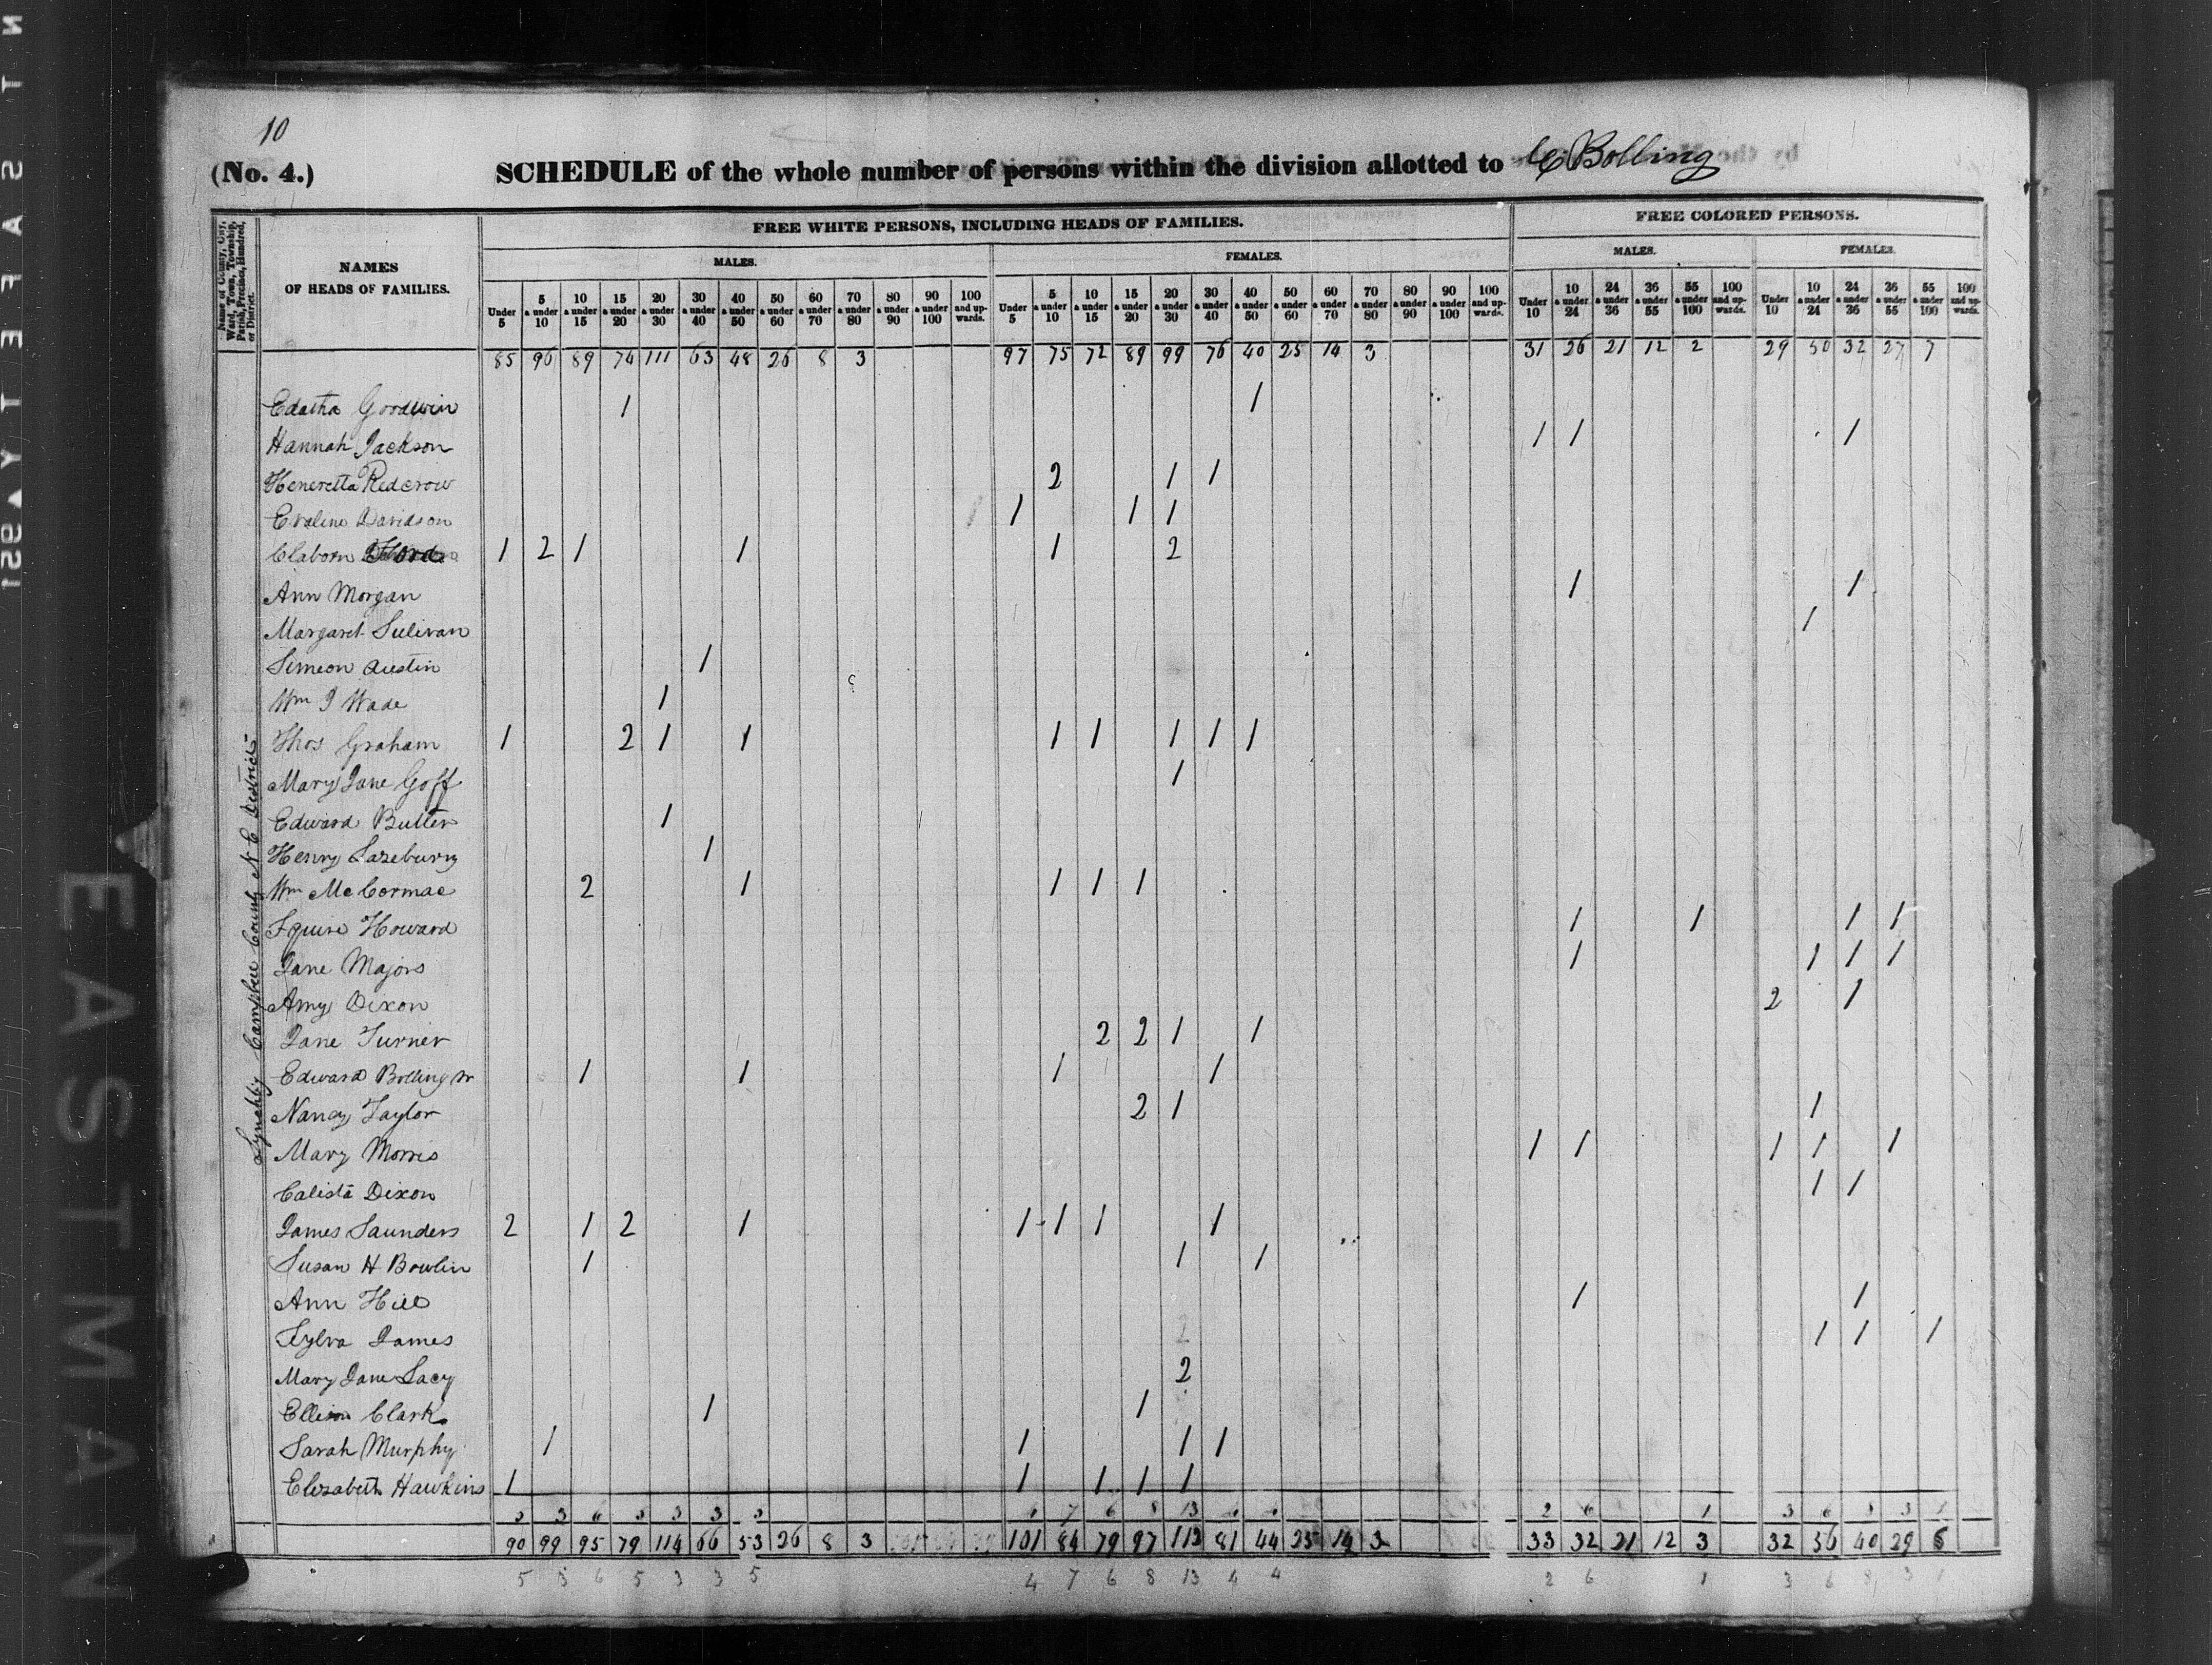 10
(No. 4.) SCHEDULE of the whole number of persons within the division allotted to C Bolling
Name of County, City, Ward, Town, Township, Parish, Precinct, Hundred, or District.
NAMES OF HEADS OF FAMILIES.
FREE WHITE PERSONS, INCLUDING HEADS OF FAMILIES.
FREE COLORED PERSONS.
MALES. FEMALES. MALES. FEMALES.
Under 5 5 & under 10 10 & under 15 15 & under 20 20 & under 30 30 & under 40 40 & under 50 50 & under 60 60 & under 70 70 & under 80 80 & under 90 90 & under 100 100 and upwards. Under 5 5 & under 10 10 & under 15 15 & under 20 20 & under 30 30 & under 40 40 & under 50 50 & under 60 60 & under 70 70 & under 80 80 & under 90 90 & under 100 100 and upwards. Under 10 10 & under 24 24 & under 36 36 & under 55 55 & under 100 100 and upwards. Under 10 10 & under 24 24 & under 36 36 & under 55 55 & under 100 100 and upwards.
85 96 89 74 111 63 48 26 8 3 97 75 72 89 99 76 40 25 14 3 31 26 21 12 2 29 50 32 27 7
Edatha Goodwin 1 1
Hannah Jackson 1 1 1
Heneretta Redcrow 2 1 1
Evaline Davidson 1 1 1
Claborn Ford 1 2 1 1 1 2
Ann Morgan 1 1
Margaret Sulivan 1
Simeon Austin 1
Wm J Wade 1
Thos Graham 1 2 1 1 1 1 1 1 1
Mary Jane Goff 1
Edward Butter 1
Henry 1
Wm McCormac 2 1 1 1 1
Squire Howard 1 1 1 1
Jane Majors 1 1 1 1
Amy Dixon 2 1
Jane Turner 2 2 1 1
Edward Bolling Sr 1 1 1 1
Nancy Taylor 2 1 1
Mary Morris 1 1 1 1 1
Calista Dixon 1 1
James Saunders 2 1 2 1 1 1 1 1
Susan H Bowlin 1 1 1
Ann Hill 1 1
Sylva James 1 1 1
Mary Jane Lacy 2
Ellison Clark 1 1
Sarah Murphy 1 1 1 1
Elizabeth Hawkins 1 1 1 1 1
90 99 95 79 114 66 53 26 8 3 101 84 79 97 112 81 44 25 14 3 33 32 21 12 3 32 56 40 29 8
5 3 6 5 3 3 5 4 7 6 8 13 4 4 2 6 1 3 6 8 3 1
Lynchbg Campbell County N E District
EASTMAN
SAFETY